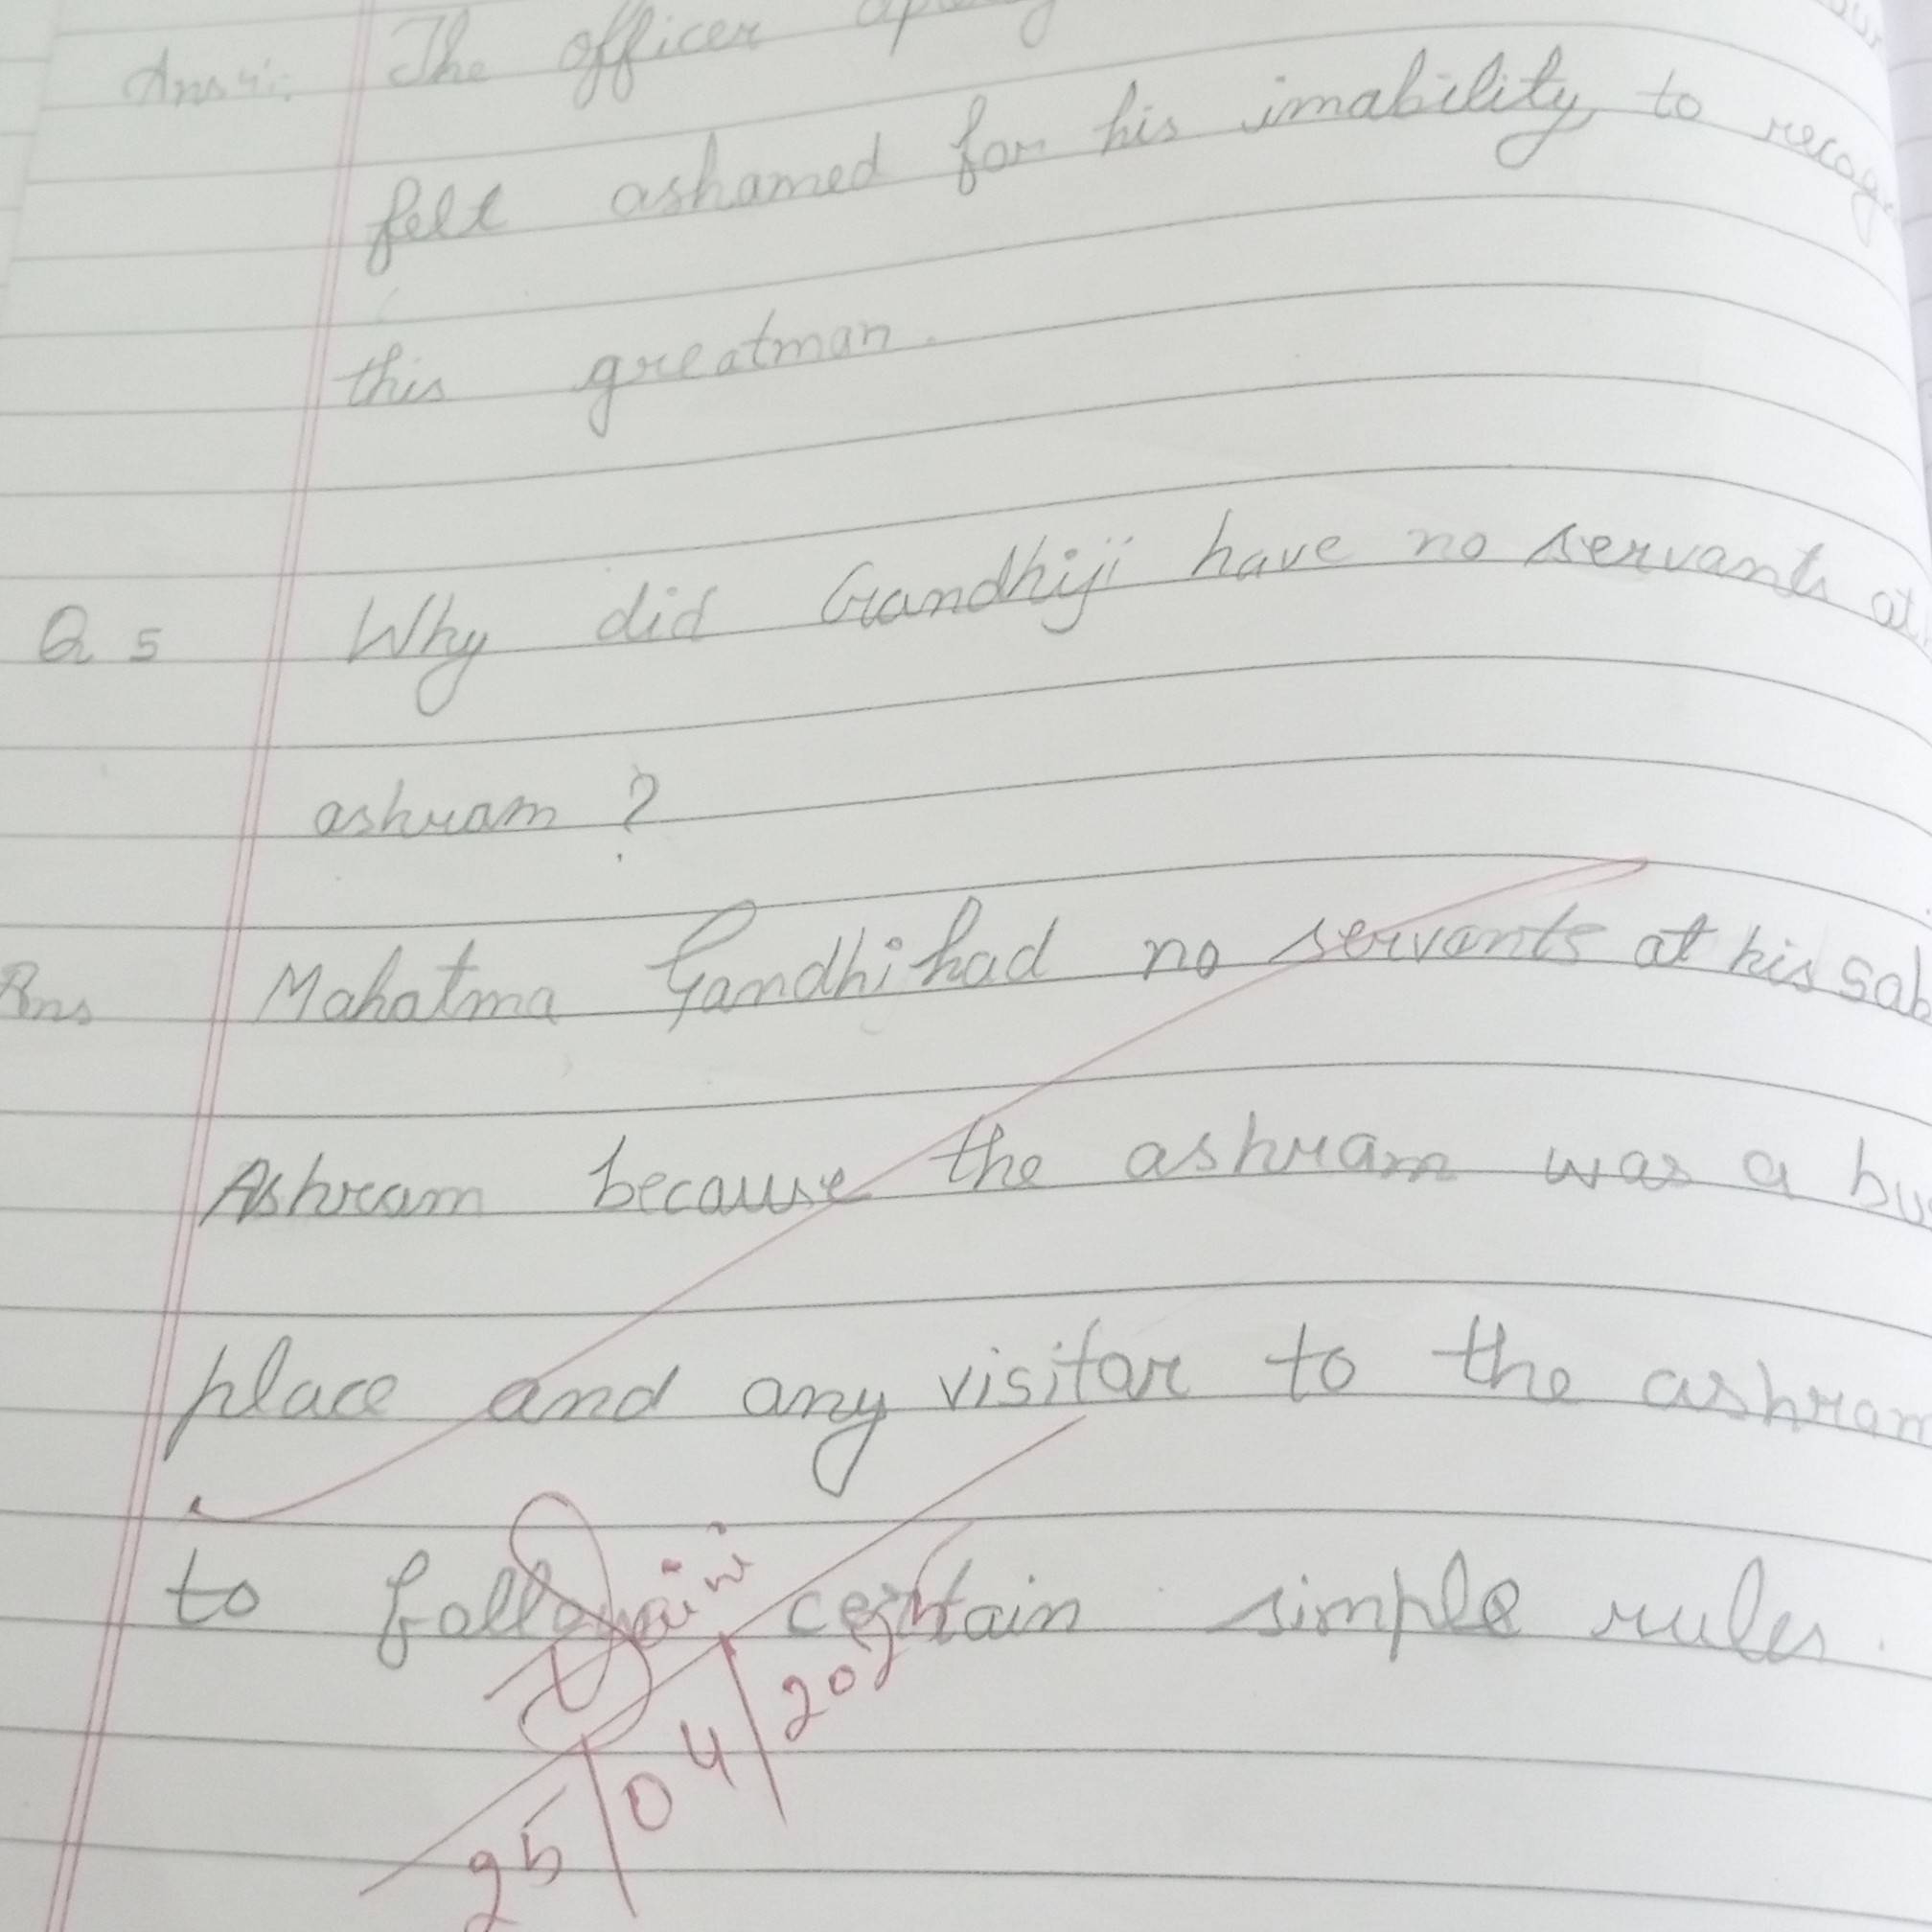 Ans4: The officer
felt ashamed for his imability to recog
this greatman.
Q 5 Why did Gandhiji have no servants at
ashram ?
Ans Mahatma Gandhi had no servants at his Sab
Ashram because the ashram was a bu
place and any visitor to the ashram
to follow certain simple rules.
25/04/202